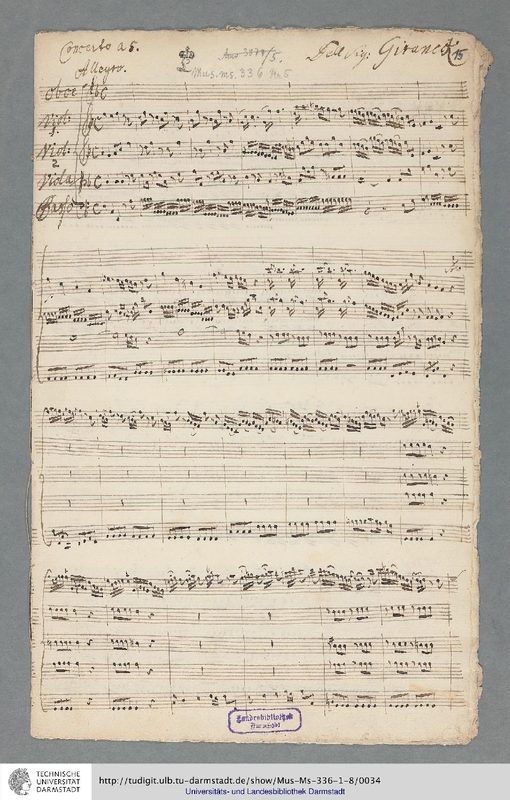 Concerto a 5.
5.
Mus. ms. 336 No 5
Dell Sig. Giraneck
15
Allegro.
Oboe
Viol:
1.
Viol:
2
Viola
Basso
Landesbibliothek
Darmstadt
TECHNISCHE
UNIVERSITÄT
DARMSTADT
http://tudigit.ulb.tu-darmstadt.de/show/Mus-Ms-336-1-8/0034
Universitäts- und Landesbibliothek Darmstadt